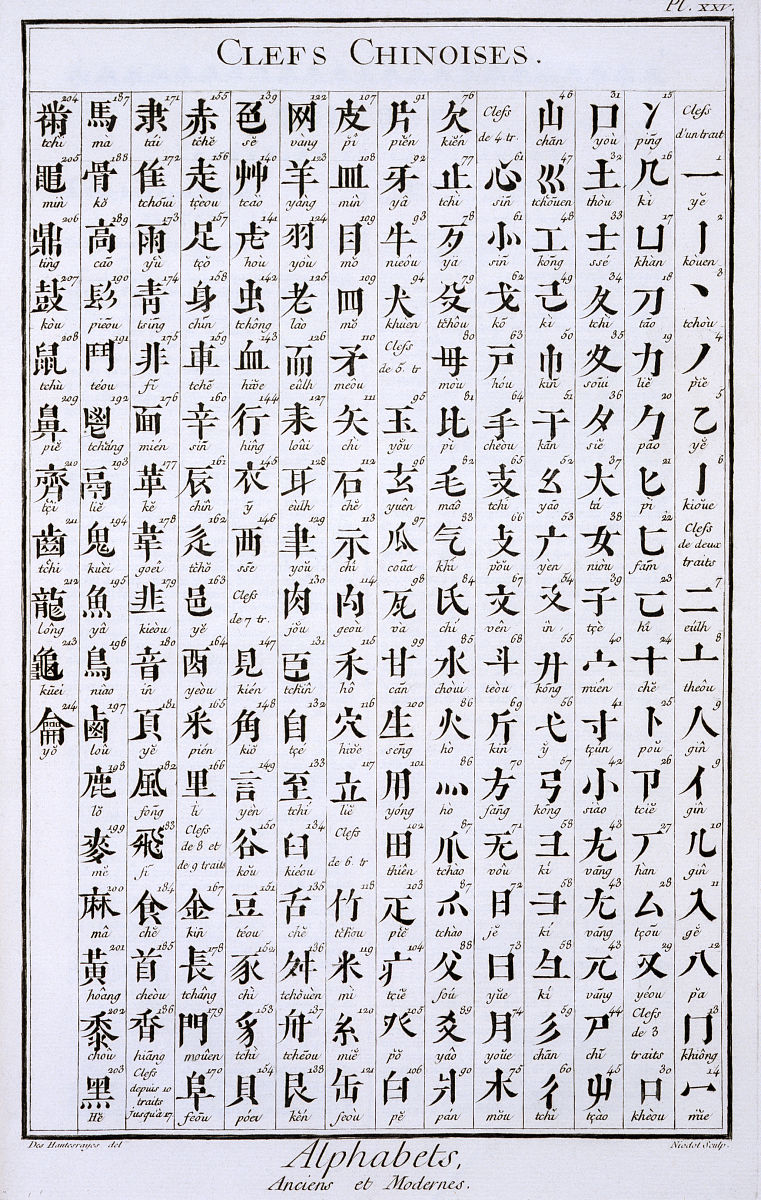 Pl. XXV.
CLEFS CHINOISES.
Clefs
d'un trait
1 一 yĕ
2 丨 kòuen
3 丶 tchòu
4 丿 piĕ
5 乙 yĕ
6 亅 kioŭe
Clefs
de deux
traits
7 二 eúlh
8 亠 theôu
9 人 gîn
9 亻 gîn
10 儿 gîn
11 入 gĕ
12 八 pa
13 冂 khiông
14 冖 mie
15 冫 pīng
16 几 kì
17 凵 khàn
18 刀 tāo
19 力 liĕ
20 勹 pāo
21 匕 pì
22 匚 fām
23 匸 hĭ
24 十 chĕ
25 卜 poŭ
26 卩 tciĕ
27 厂 hàn
28 厶 tçōu
29 又 yéou
Clefs
de 3
traits
30 口 khèou
31 囗 yoù
32 土 thòu
33 士 ssé
34 夂 tchì
35 夊 soūi
36 夕 siĕ
37 大 tá
38 女 niòu
39 子 tçè
40 宀 mién
41 寸 tçún
42 小 siào
43 尢 vāng
43 尤 vāng
43 兀 vāng
44 尸 chī
45 屮 tçào
46 山 chān
47 巛 tchōuen
48 工 kōng
49 己 kì
50 巾 kīn
51 干 kān
52 幺 yāo
53 广 yèn
54 廴 ìn
55 廾 kòng
56 弋 ỳ
57 弓 kōng
58 彐 kí
58 彐 kí
58 彑 kí
59 彡 chān
60 彳 tchĭ
Clefs
de 4 tr.
61 心 sīn
61 㣺 sīn
62 戈 kō
63 戶 hóu
64 手 chèou
65 支 tchī
66 攴 pŏu
67 文 vên
68 斗 tèou
69 斤 kīn
70 方 fāng
71 无 voù
72 日 jĕ
73 曰 yŭe
74 月 yoŭe
75 木 mŏu
76 欠 kién
77 止 tchì
78 歹 yă
79 殳 tchôu
80 毋 moù
81 比 pì
82 毛 maô
83 气 khí
84 氏 chí
85 水 choùi
86 火 hò
86 灬 hò
87 爪 tchào
87 爫 tchào
88 父 foú
89 爻 yào
90 爿 pán
91 片 pién
92 牙 yâ
93 牛 nieôu
94 犬 khuen
Clefs
de 5. tr
95 玉 yŏu
96 玄 yuên
97 瓜 coūa
98 瓦 va
99 甘 cān
100 生 sēng
101 用 yóng
102 田 thiên
103 疋 piĕ
104 疒 tçiĕ
105 癶 pŏ
106 白 pĕ
107 皮 pî
108 皿 mìn
109 目 mŏ
109 罒 mŏ
110 矛 meôu
111 矢 chì
112 石 chĕ
113 示 chí
114 禸 geoù
115 禾 hô
116 穴 hiŭe
117 立 liĕ
Clefs
de 6. tr
118 竹 tchŏu
119 米 mì
120 糸 miĕ
121 缶 feoù
122 网 vàng
123 羊 yâng
124 羽 yòu
125 老 lào
126 而 eûlh
127 耒 loûi
128 耳 eùlh
129 聿 yoŭ
130 肉 jŏu
131 臣 tchîn
132 自 tçé
133 至 tchí
134 臼 kiéou
135 舌 chĕ
136 舛 tchòuèn
137 舟 tchēou
138 艮 kén
139 色 sĕ
140 艸 tcào
141 虍 hoù
142 虫 tchông
143 血 hiŭe
144 行 hîng
145 衣 ȳ
146 襾 ssē
Clefs
de 7 tr.
147 見 kién
148 角 kiŏ
149 言 yèn
150 谷 kŏu
151 豆 téou
152 豕 chì
153 豸 tchì
154 貝 póei
155 赤 tchĕ
156 走 tçeou
157 足 tçŏ
158 身 chīn
159 車 tchē
160 辛 sīn
161 辰 chîn
162 辵 tchŏ
163 邑 yĕ
164 酉 yeòu
165 釆 pién
166 里 li
Clefs
de 8 et
de 9 traits
167 金 kīn
178 長 tchâng
179 門 mouên
170 阜 feōu
171 隶 tái
172 隹 tchōui
173 雨 yù
174 靑 tsīng
175 非 fī
176 面 mién
177 革 kĕ
178 韋 goeî
179 韭 kieòu
180 音 īn
181 頁 yĕ
182 風 fong
183 飛 fī
184 食 chĕ
185 首 cheòu
186 香 hiāng
Clefs
depuis 10
traits
jusqu'à 17
187 馬 mà
188 骨 kŏ
189 高 caō
190 髟 piēou
191 鬥 téou
192 鬯 tcháng
193 鬲 liĕ
194 鬼 kuèi
195 魚 yû
196 鳥 niao
197 鹵 loù
198 鹿 lŏ
199 麥 mĕ
200 麻 mâ
201 黃 hoâng
202 黍 choù
203 黑 Hĕ
204 黹 tchì
205 黽 mìn
206 鼎 tìng
207 鼓 kòu
208 鼠 tchù
209 鼻 piĕ
210 齊 tçî
211 齒 tchì
212 龍 lông
213 龜 kūei
214 龠 yŏ
Des Hautesrayes del
Niodot Sculp.
Alphabets,
Anciens et Modernes.